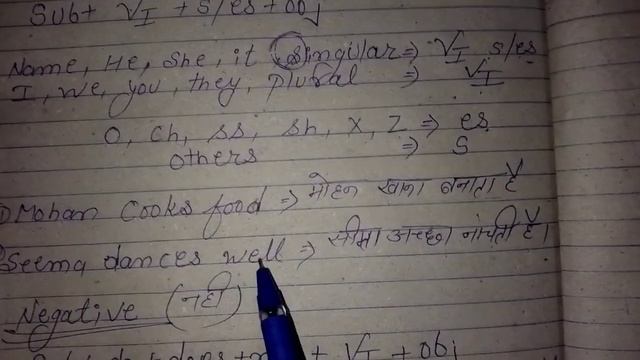 Sub+ V_I + s/es + obj
Name, He, she, it (singular ⇒ V_I s/es
I, we, you, they, plural ⇒ V_I
o, ch, ss, sh, x, z ⇒ es
others ⇒ s
① Mohan Cooks food ⇒ मोहन खाना बनाता है
Seema dances well ⇒ सीमा अच्छा नाचती है।
Negative (नही)
+ V_I + obj